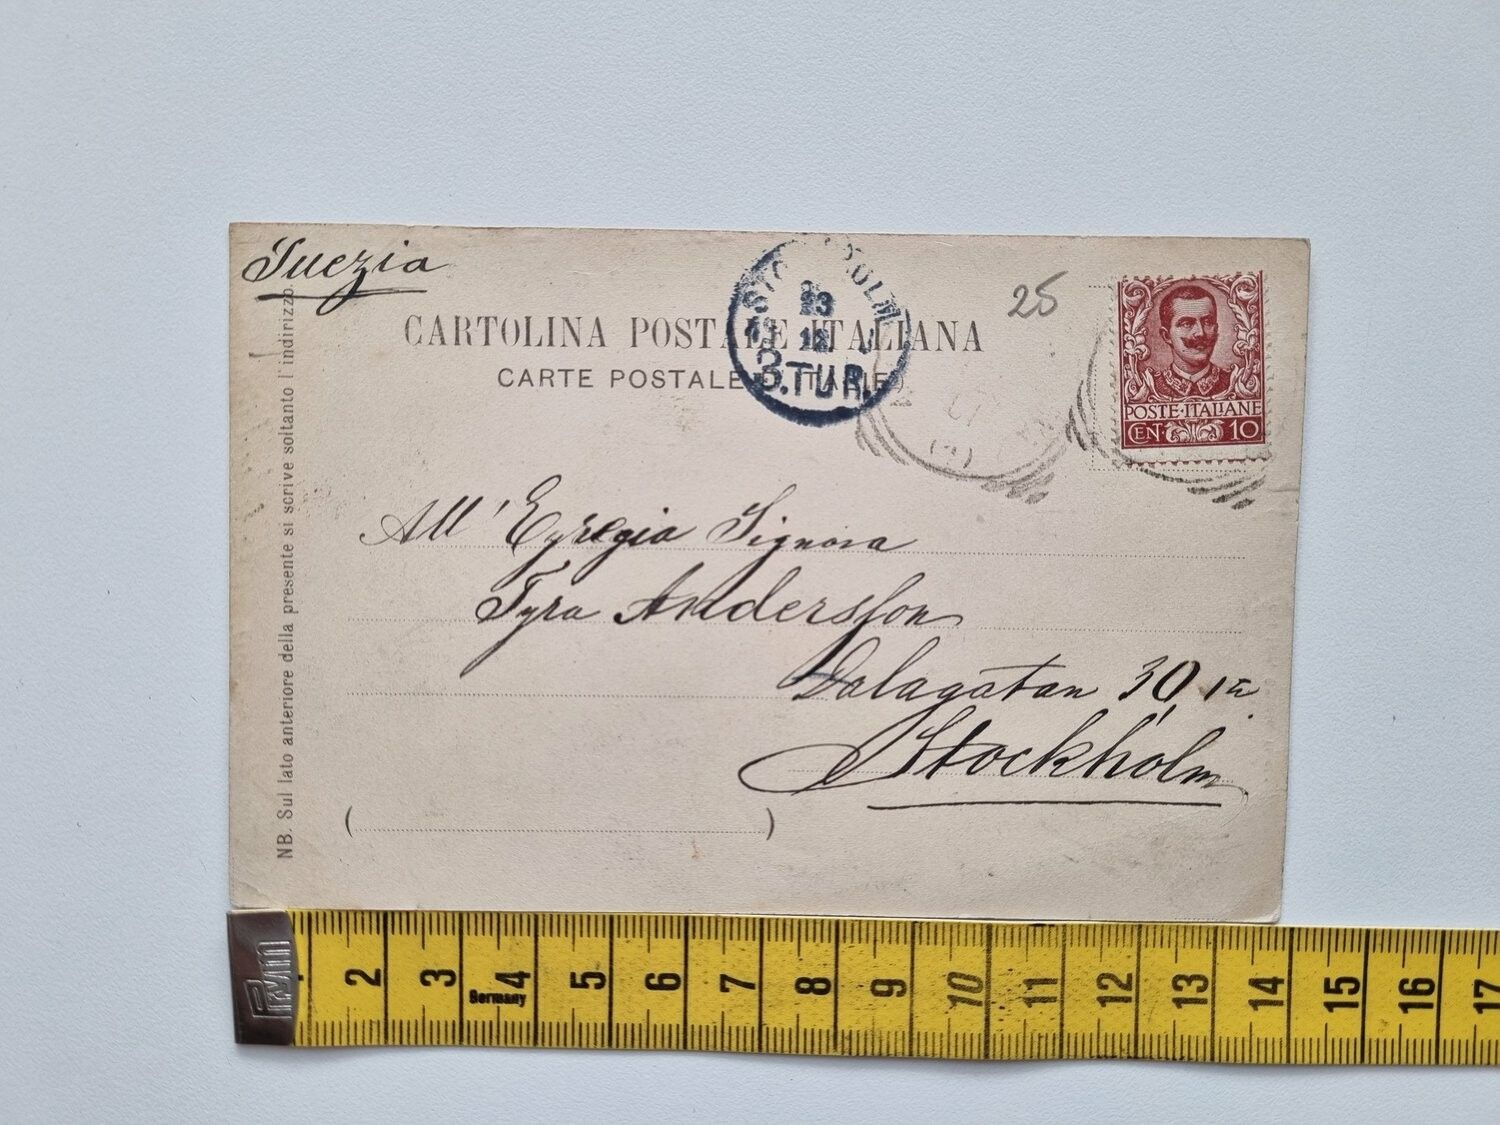 Suezia
25
CARTOLINA POSTALE ITALIANA
CARTE POSTALE
STOCKHOLM
23
12
3.TUR.
POSTE·ITALIANE
CEN. 10
All' Egregia Signora
Tyra Andersson
Dalagatan 30, 1
Stockholm
( )
NB. Sul lato anteriore della presente si scrive soltanto l'indirizzo.
Prym
2 3 4 5 6 7 8 9 10 11 12 13 14 15 16 17
Germany